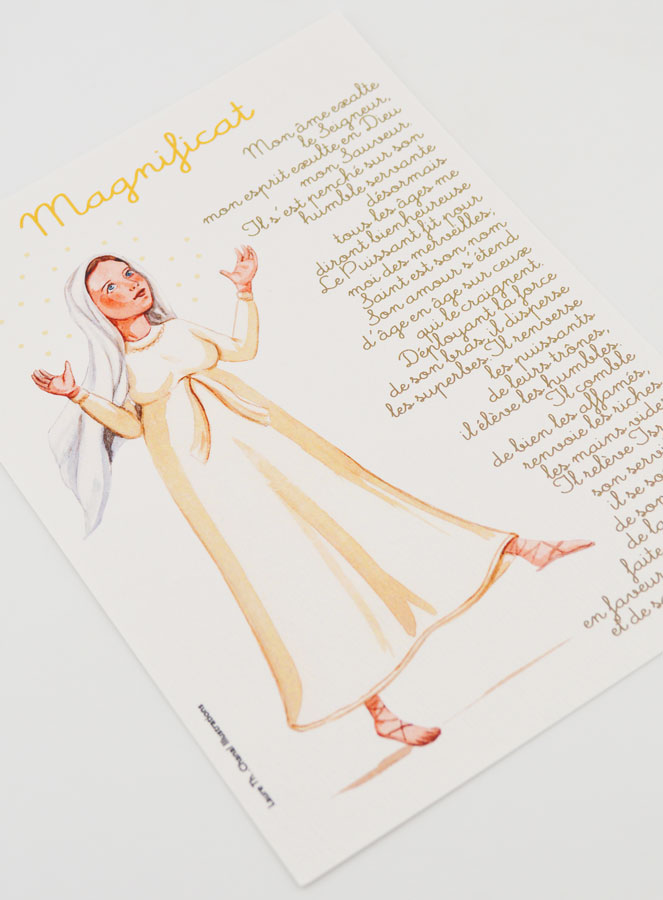 Magnificat
Mon âme exalte
le Seigneur,
mon esprit exulte en Dieu
mon Sauveur.
Il s'est penché sur son
humble servante
désormais
tous les âges me
diront bienheureuse
Le Puissant fit pour
moi des merveilles,
Saint est son nom
Son amour s'étend
d'âge en âge sur ceux
qui le craignent.
Déployant la force
de son bras, il disperse
les superbes. Il renverse
les puissants
de leurs trônes,
il élève les humbles
Il comble
de bien les affamés,
renvoie les riches
les mains vides
Il relève Isr
son servi
il se so
de son
de la
faite
en faveur
et de s
Laure Th. Chanal Illustrations